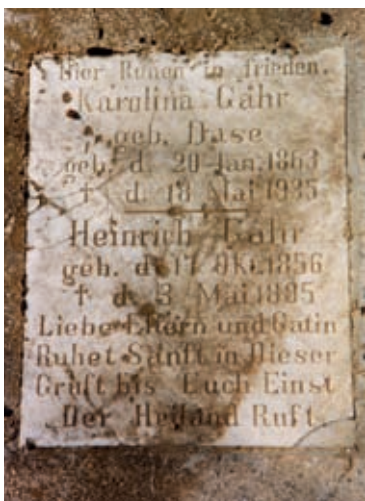 Hier Ruhen in frieden.
Karolina Gähr
geb. Dase
geb. d. 20 Jan. 1863
† d. 18 Mai 1935
Heinrich Gähr
geb. d. 17 Okt. 1856
† d. 3 Mai
Liebe Eltern und Gatin
Ruhet Sanft in Dieser
Gruft bis Euch Einst
Der Heiland Ruft